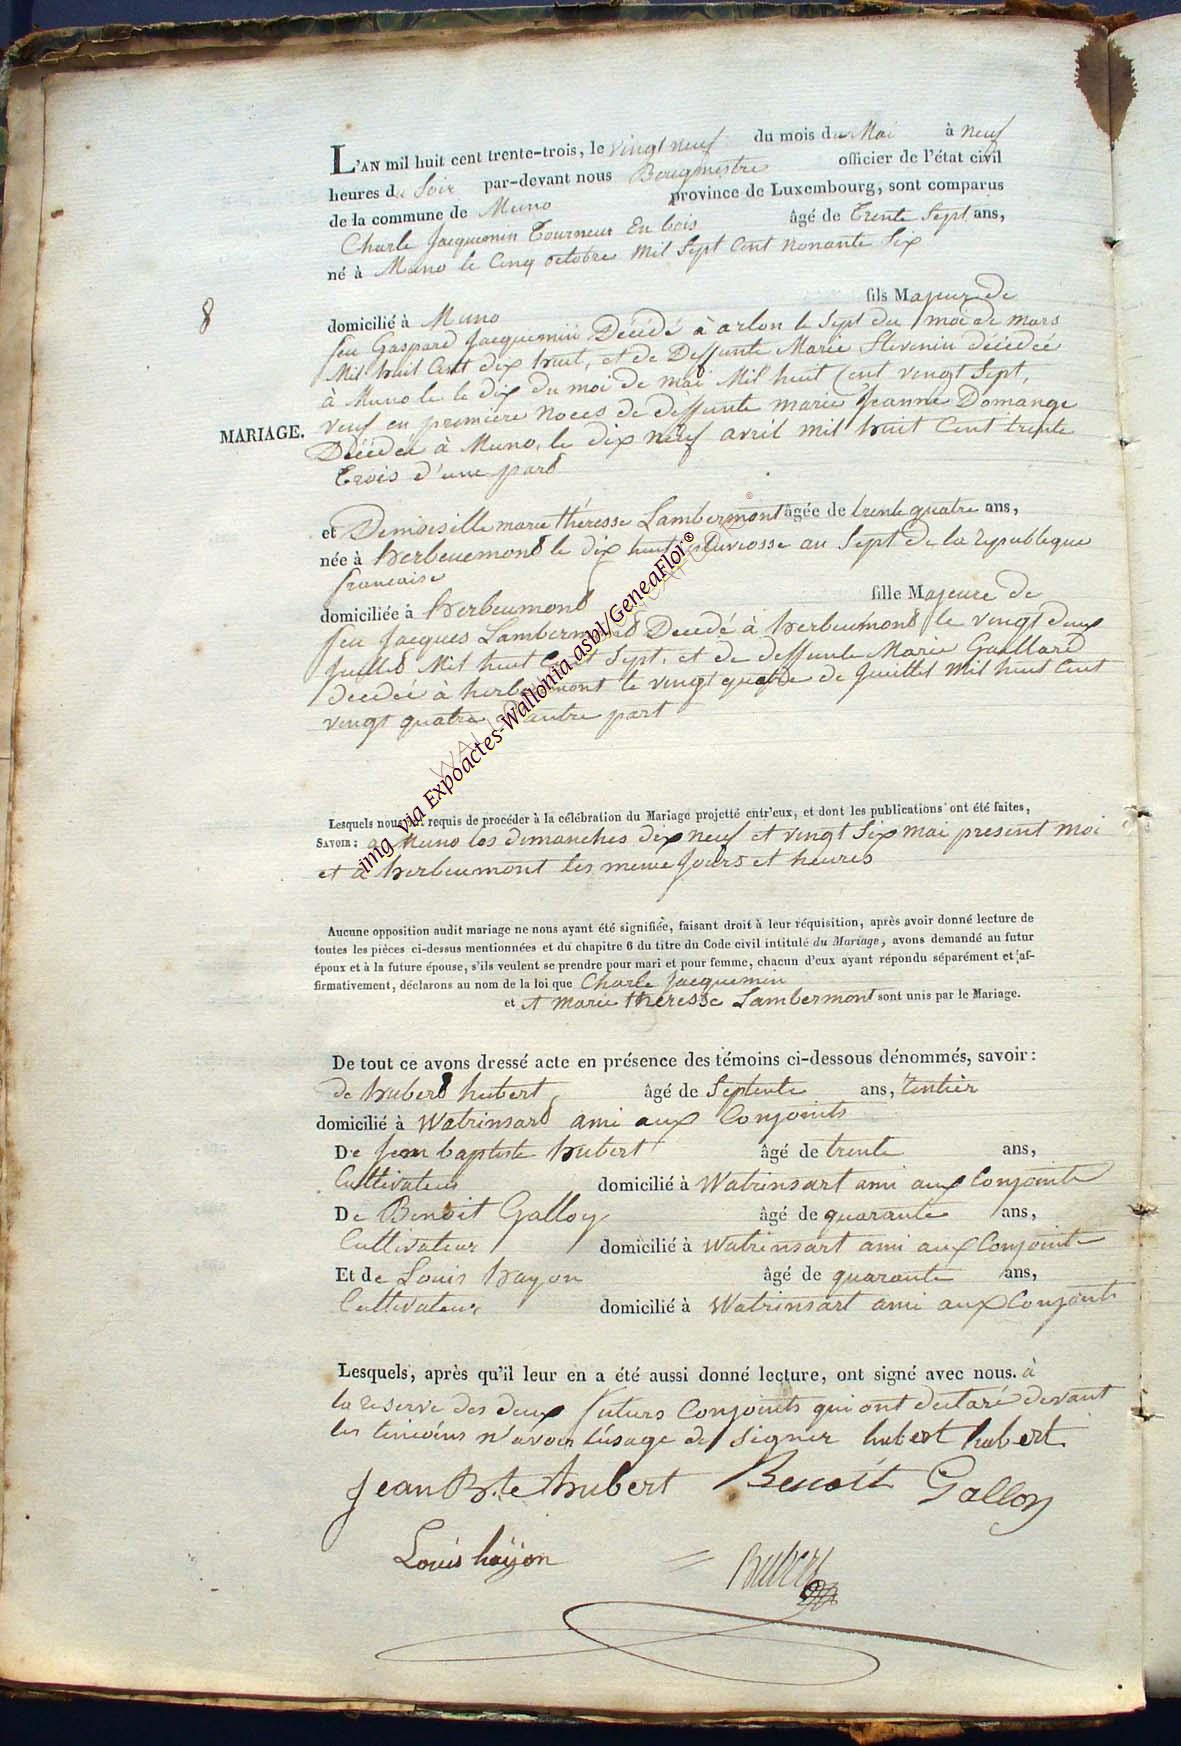 L'AN mil huit cent trente-trois, le vingt neuf du mois du Mai à neuf
heures du Soir par-devant nous Bourgmestre officier de l'état civil
de la commune de Muno province de Luxembourg, sont comparus
Charle Jacquemin Tourneur En bois âgé de Trente Sept ans,
né à Muno le Cinq octobre Mil Sept Cent nonante Six
8
domicilié à Muno fils Majeur de
feu Gaspard Jacquemin Décédé à arlon le Sept du moi de mars
Mil huit Cent dix huit, et de Deffunte Marie Stevenin décédée
à Muno le le dix du moi de mai Mil huit Cent vingt Sept,
MARIAGE. veuf en premiere Noces de deffunte marie Jeanne Domange
Décédée à Muno, le dix neuf avril mil huit Cent trente
Trois d'une part
et Demoiselle marie théresse Lambermont âgée de trente quatre ans,
née à herbeuemont le dix huit pluviosse an Sept de la republique
francaise
domiciliée à herbeumont fille Majeure de
feu Jacques Lambermont Decedé à herbeumont le vingt deux
Juillet Mil huit Cent Sept, et de deffunte Marie Gaillard
decedée à herbeumont le vingt quatre de Juillet Mil huit Cent
vingt quatre d'autre part
Lesquels nous ont requis de procéder à la célébration du Mariage projetté entr'eux, et dont les publications ont été faites,
SAVOIR: a Muno les dimanches dix neuf et vingt Six mai present moi
et a herbeumont les meme Jours et heures
Aucune opposition audit mariage ne nous ayant été signifiée, faisant droit à leur réquisition, après avoir donné lecture de
toutes les pièces ci-dessus mentionnées et du chapitre 6 du titre du Code civil intitulé du Mariage, avons demandé au futur
époux et à la future épouse, s'ils veulent se prendre pour mari et pour femme, chacun d'eux ayant répondu séparément et af-
firmativement, déclarons au nom de la loi que Charle Jacquemin
et et Marie théresse Lambermont sont unis par le Mariage.
De tout ce avons dressé acte en présence des témoins ci-dessous dénommés, savoir:
de hubert hubert âgé de Septente ans, rentier
domicilié à Watrinsart ami aux Conjoints
De Jean baptiste hubert âgé de trente ans,
Cultivateur domicilié à Watrinsart ami aux Conjoints
De Benoit Galloy âgé de quarante ans,
Cultivateur domicilié à Watrinsart ami aux Conjoints
Et de Louis hayon âgé de quarante ans,
Cultivateur domicilié à Watrinsart ami aux Conjoints
Lesquels, après qu'il leur en a été aussi donné lecture, ont signé avec nous. à
la reserve des deux futurs Conjoints qui ont declaré devant
les timoins n'avoir l'usage de signer hubert hubert
Jean Bte hubert Benoit Galloy
Louis haÿon
img via Expoactes-Wallonia asbl/GeneaFlor®